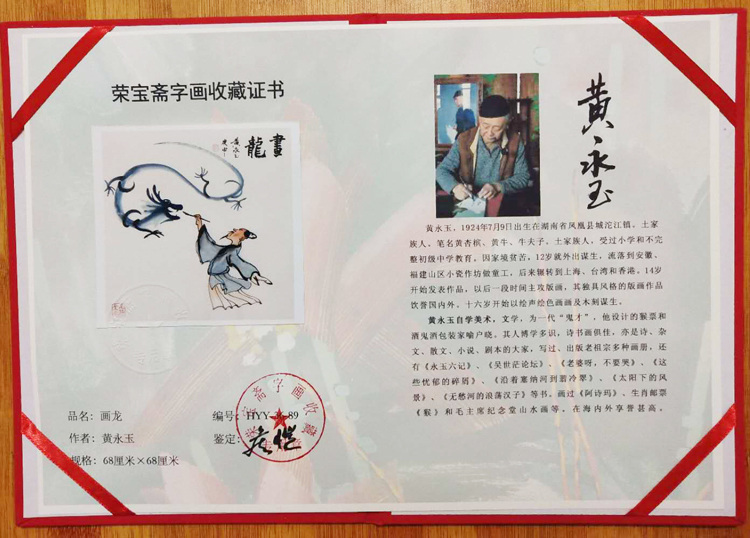 荣宝斋字画收藏证书
畫龍
黄永玉
品名：画龙
作者：黄永玉
规格：68厘米×68厘米
编号：HYY
89
鉴定：
斋字画收藏
黄永玉
黄永玉，1924年7月9日出生在湖南省凤凰县城沱江镇。土家
族人、笔名黄杏槟、黄牛、牛夫子。土家族人，受过小学和不完
整初级中学教育。因家境贫苦，12岁就外出谋生，流落到安徽、
福建山区小瓷作坊做童工，后来辗转到上海、台湾和香港。14岁
开始发表作品，以后一段时间主攻版画，其独具风格的版画作品
饮誉国内外。十六岁开始以绘声绘色画画及木刻谋生。
黄永玉自学美术，文学，为一代“鬼才”，他设计的猴票和
酒鬼酒包装家喻户晓。其人博学多识，诗书画俱佳，亦是诗、杂
文、散文、小说、剧本的大家，写过、出版老祖宗多种画册，还
有《永玉六记》、《吴世茫论坛》、《老婆呀，不要哭》、《这
些忧郁的碎屑》、《沿着塞纳河到翡冷翠》、《太阳下的风
景》、《无愁河的浪荡汉子》等书。画过《阿诗玛》、生肖邮票
《猴》和毛主席纪念堂山水画等，在海内外享誉甚高。